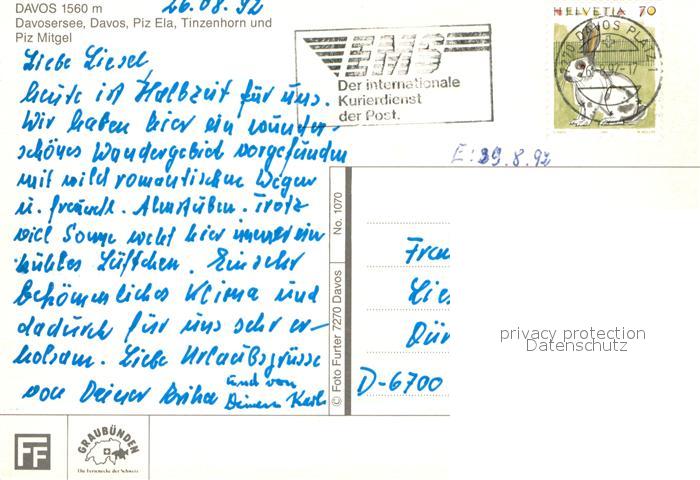 DAVOS 1560 m
Davosersee, Davos, Piz Ela, Tinzenhorn und
Piz Mitgel
26.08.92
Liebe Liesel,
heute ist Halbzeit für uns.
Wir haben hier ein wunder-
schönes Wandergebiet vorgefunden
mit wild romantischen Wegen
u. freundl. Almstuben. Trotz
viel Sonne weht hier immer ein
kühles Lüftchen. Ein sehr
bekömmliches Klima und
dadurch für uns sehr er-
holsam. Liebe Urlaubsgrüsse
von Deiner
und von
Deinem Karl
EMS
Der internationale
Kurierdienst
der Post.
HELVETIA 70
DAVOS PLATZ 1
E: 29.8.92
No. 1070
© Foto Furter 7270 Davos
Frau
Lies
Dür
D-6700
privacy protection
Datenschutz
FF
GRAUBÜNDEN
Die Ferienecke der Schweiz